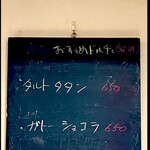 おすすめドルチェ
タルト タタン 650
ガトー ショコラ 650